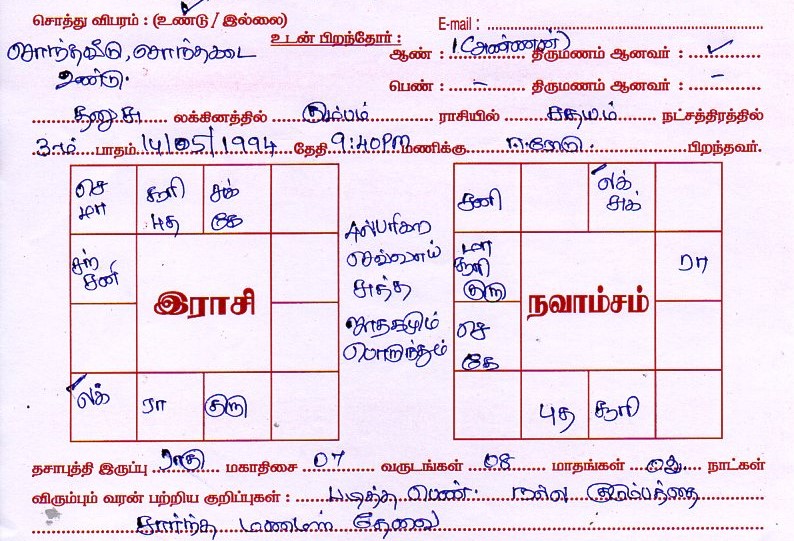 சொத்து விபரம் : (உண்டு / இல்லை) E-mail :
உடன் பிறந்தோர் :
சொந்தவீடு, சொந்தகடை ஆண் : 1 (அண்ணன்) திருமணம் ஆனவர் : ✓
உண்டு. பெண் : – திருமணம் ஆனவர் : –
தனுசு லக்கினத்தில் கும்பம் ராசியில் சதயம் நட்சத்திரத்தில்
3ம் பாதம் 14/05/1994 தேதி 9:40PM மணிக்கு பிறந்தவர்.
செ மா
சூரி புத
சுக் கே
சந் சனி
இராசி
லக்
ரா
குரு
செவ்வாய்
சுத்த
ஜாதகமும்
பொறுந்தும்
சனி
லக் சுக்
மா சூரி குரு
ரா
நவாம்சம்
செ கே
புத
சூரி
தசாபுத்தி இருப்பு ராகு மகாதிசை 07 வருடங்கள் 08 மாதங்கள் நாட்கள்
விரும்பும் வரன் பற்றிய குறிப்புகள் : படித்த பெண். நல்ல குடும்பத்தை
சார்ந்த மணமகன் தேவை